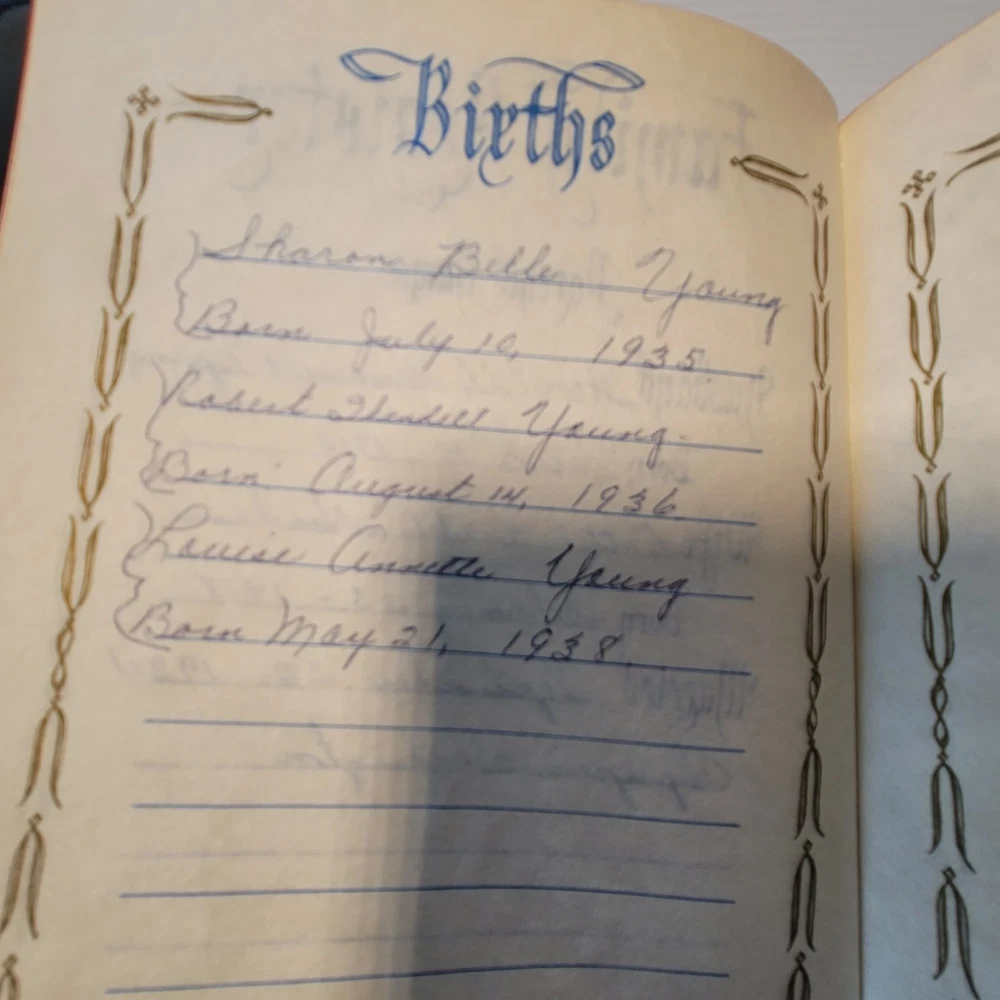 Births
Sharon Belle Young
Born July 10, 1935
Robert Young
Born August 14, 1936
Louise Annette Young
Born May 21, 1938.